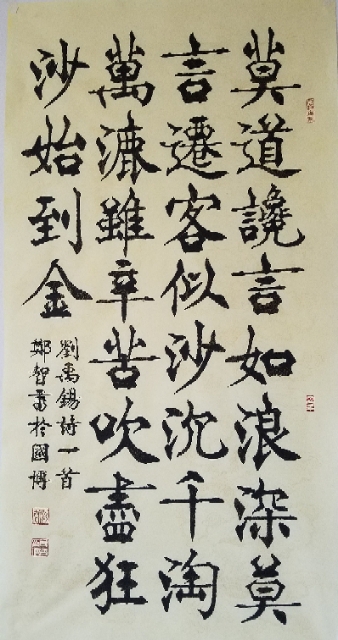 莫道讒言如浪深莫
言遷客似沙沈千淘
萬漉雖辛苦吹盡狂
沙始到金
劉禹錫詩一首
鄭智書於國博